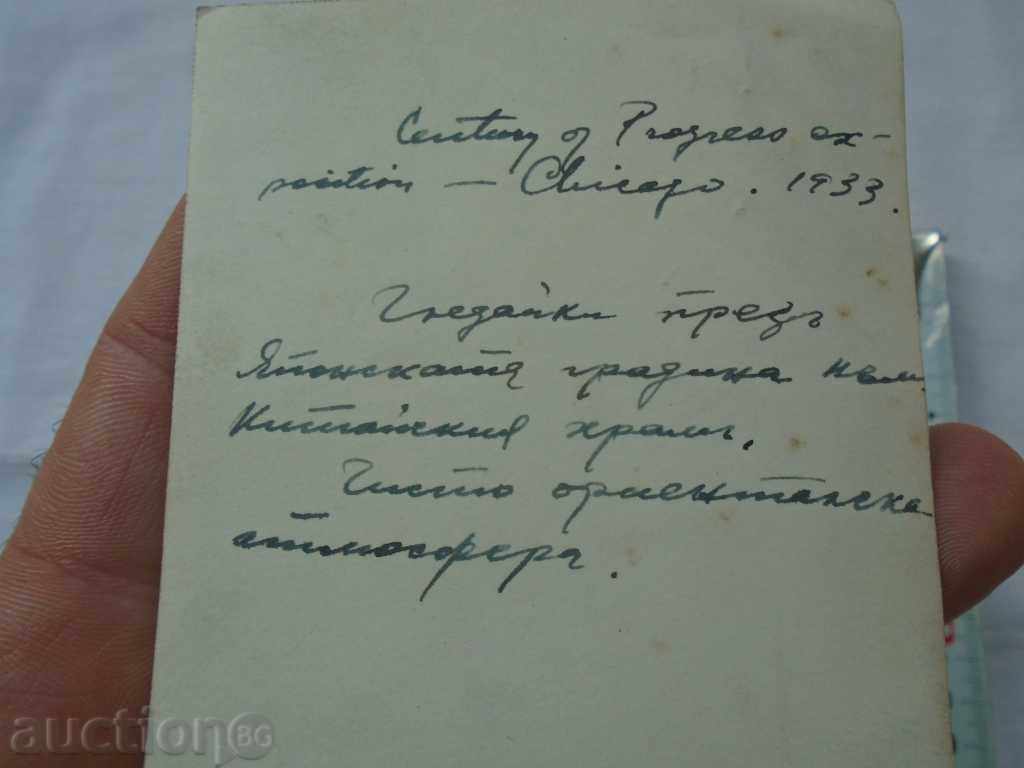 Century of Progress ex-
position — Chicago. 1933.
Гледайки презъ
Японската градина към
Китайския храмъ.
Чисто ориенталска
атмосфера.
auctionBG